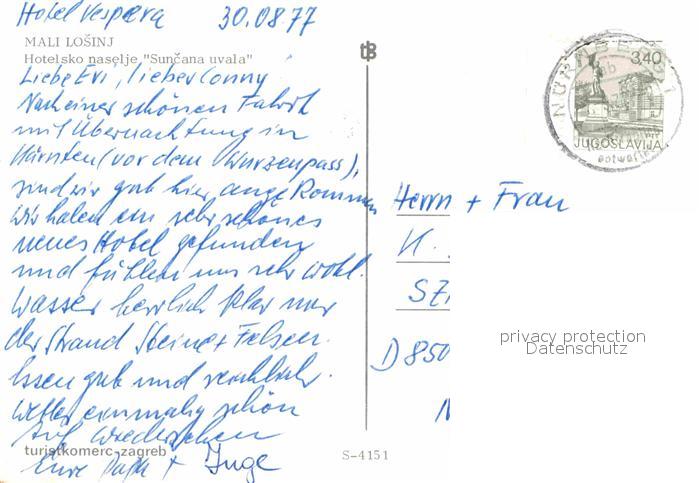 Hotel Vespera 30.08.77
MALI LOŠINJ
Hotelsko naselje "Sunčana uvala"
Liebe Evi, lieber Conny
Nach einer schönen Fahrt
mit Übernachtung in
Kärnten (vor dem Wurzenpass),
sind wir gut hier angekommen
Wir haben ein sehr schönes
neues Hotel gefunden
und fühlen uns sehr wohl.
Wasser herrlich klar nur
der Strand Steine + Felsen.
Essen gut und reichlich.
Wetter einmalig schön
Auf Wiedersehen
Eure + Inge
turistkomerc zagreb
S-4151
tB
NÜRNBERG 1
3,40
JUGOSLAVIJA
entwertet
Herrn + Frau
K.
SZ
D 850
N
privacy protection
Datenschutz